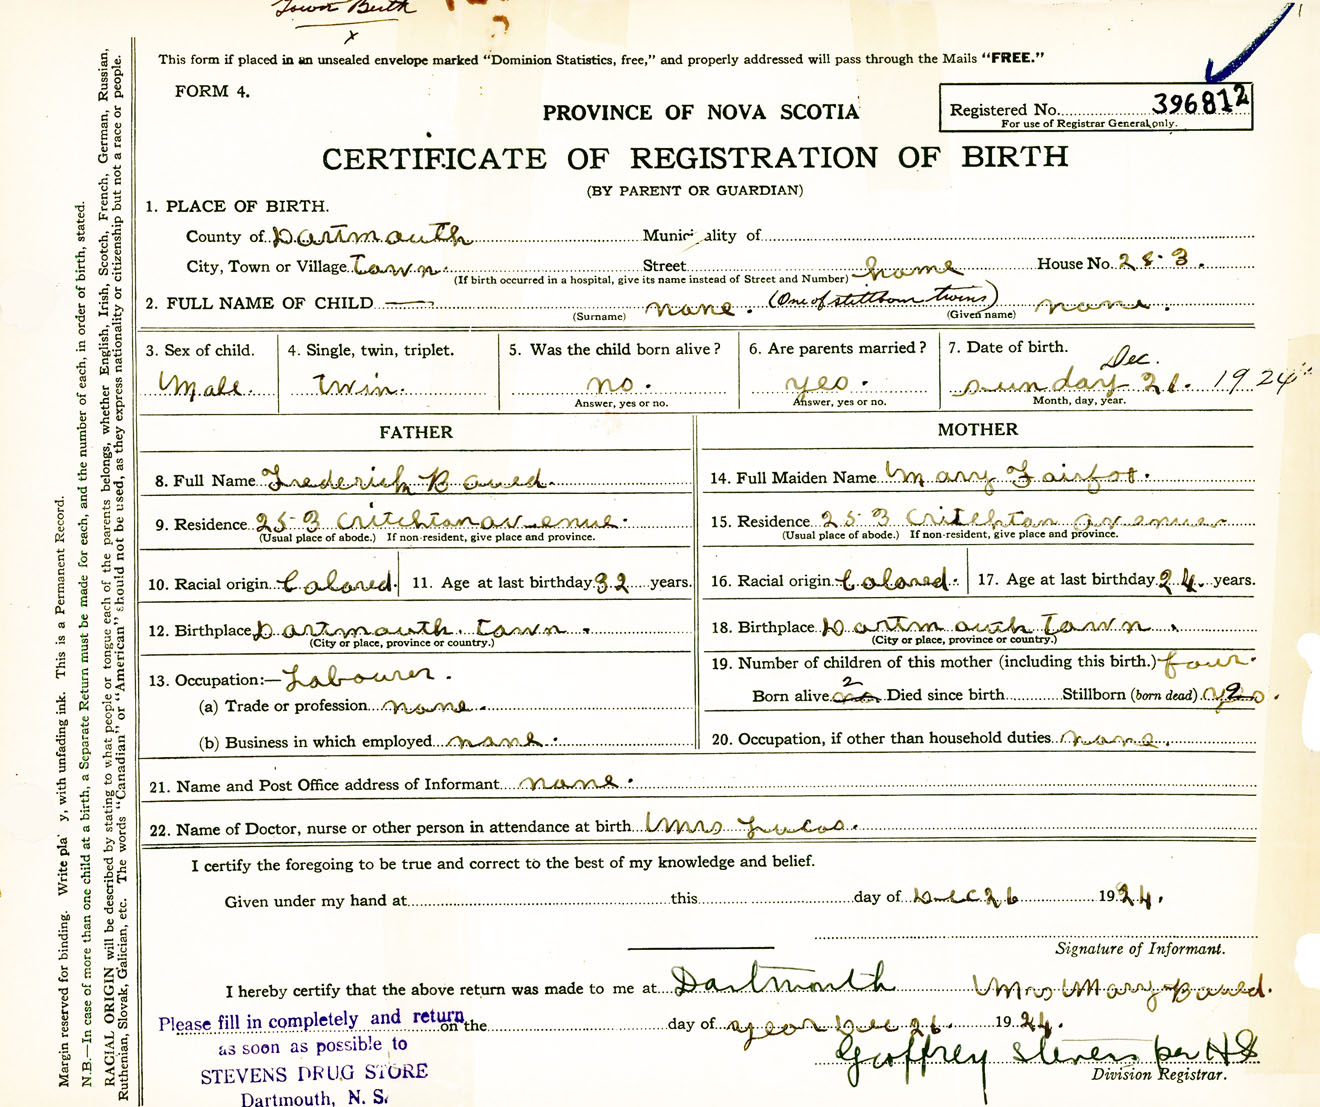 Town Birth
x
This form if placed in an unsealed envelope marked "Dominion Statistics, free," and properly addressed will pass through the Mails "FREE."
FORM 4.
PROVINCE OF NOVA SCOTIA
Registered No. 396812
For use of Registrar General only.
CERTIFICATE OF REGISTRATION OF BIRTH
(BY PARENT OR GUARDIAN)
1. PLACE OF BIRTH.
County of Dartmouth Municipality of
City, Town or Village Town. Street home House No. 253.
(If birth occurred in a hospital, give its name instead of Street and Number)
2. FULL NAME OF CHILD — none. (One of stillborn twins) none.
(Surname) (Given name)
3. Sex of child. 4. Single, twin, triplet. 5. Was the child born alive? 6. Are parents married? 7. Date of birth.
Male. Twin. no. yes. Dec. sunday 21. 1924
Answer, yes or no. Answer, yes or no. Month, day, year.
FATHER MOTHER
8. Full Name Frederick 14. Full Maiden Name Mary
9. Residence 253 Critchton avenue. 15. Residence 253 Critchton avenue.
(Usual place of abode.) If non-resident, give place and province. (Usual place of abode.) If non-resident, give place and province.
10. Racial origin Colored. 11. Age at last birthday 32 years. 16. Racial origin Colored. 17. Age at last birthday 24 years.
12. Birthplace Dartmouth. Town. 18. Birthplace Dartmouth Town.
(City or place, province or country.) (City or place, province or country.)
13. Occupation:— Labourer. 19. Number of children of this mother (including this birth.) four.
(a) Trade or profession none. Born alive 2 no Died since birth Stillborn (born dead) yes 2.
(b) Business in which employed none. 20. Occupation, if other than household duties none.
21. Name and Post Office address of Informant none.
22. Name of Doctor, nurse or other person in attendance at birth Mrs Lucas.
I certify the foregoing to be true and correct to the best of my knowledge and belief.
Given under my hand at this day of Dec 26 1924.
Signature of Informant.
I hereby certify that the above return was made to me at Dartmouth Mrs Mary
on the day of year Dec 26. 1924.
Geoffrey Stevens per HS
Division Registrar.
Please fill in completely and return
as soon as possible to
STEVENS DRUG STORE
Dartmouth, N. S.
Margin reserved for binding. Write plainly, with unfading ink. This is a Permanent Record.
N.B.—In case of more than one child at a birth, a Separate Return must be made for each, and the number of each, in order of birth, stated.
RACIAL ORIGIN will be described by stating to what people or tongue each of the parents belongs, whether English, Irish, Scotch, French, German, Russian,
Ruthenian, Slovak, Galician, etc. The words "Canadian" or "American" should not be used, as they express nationality or citizenship but not a race or people.